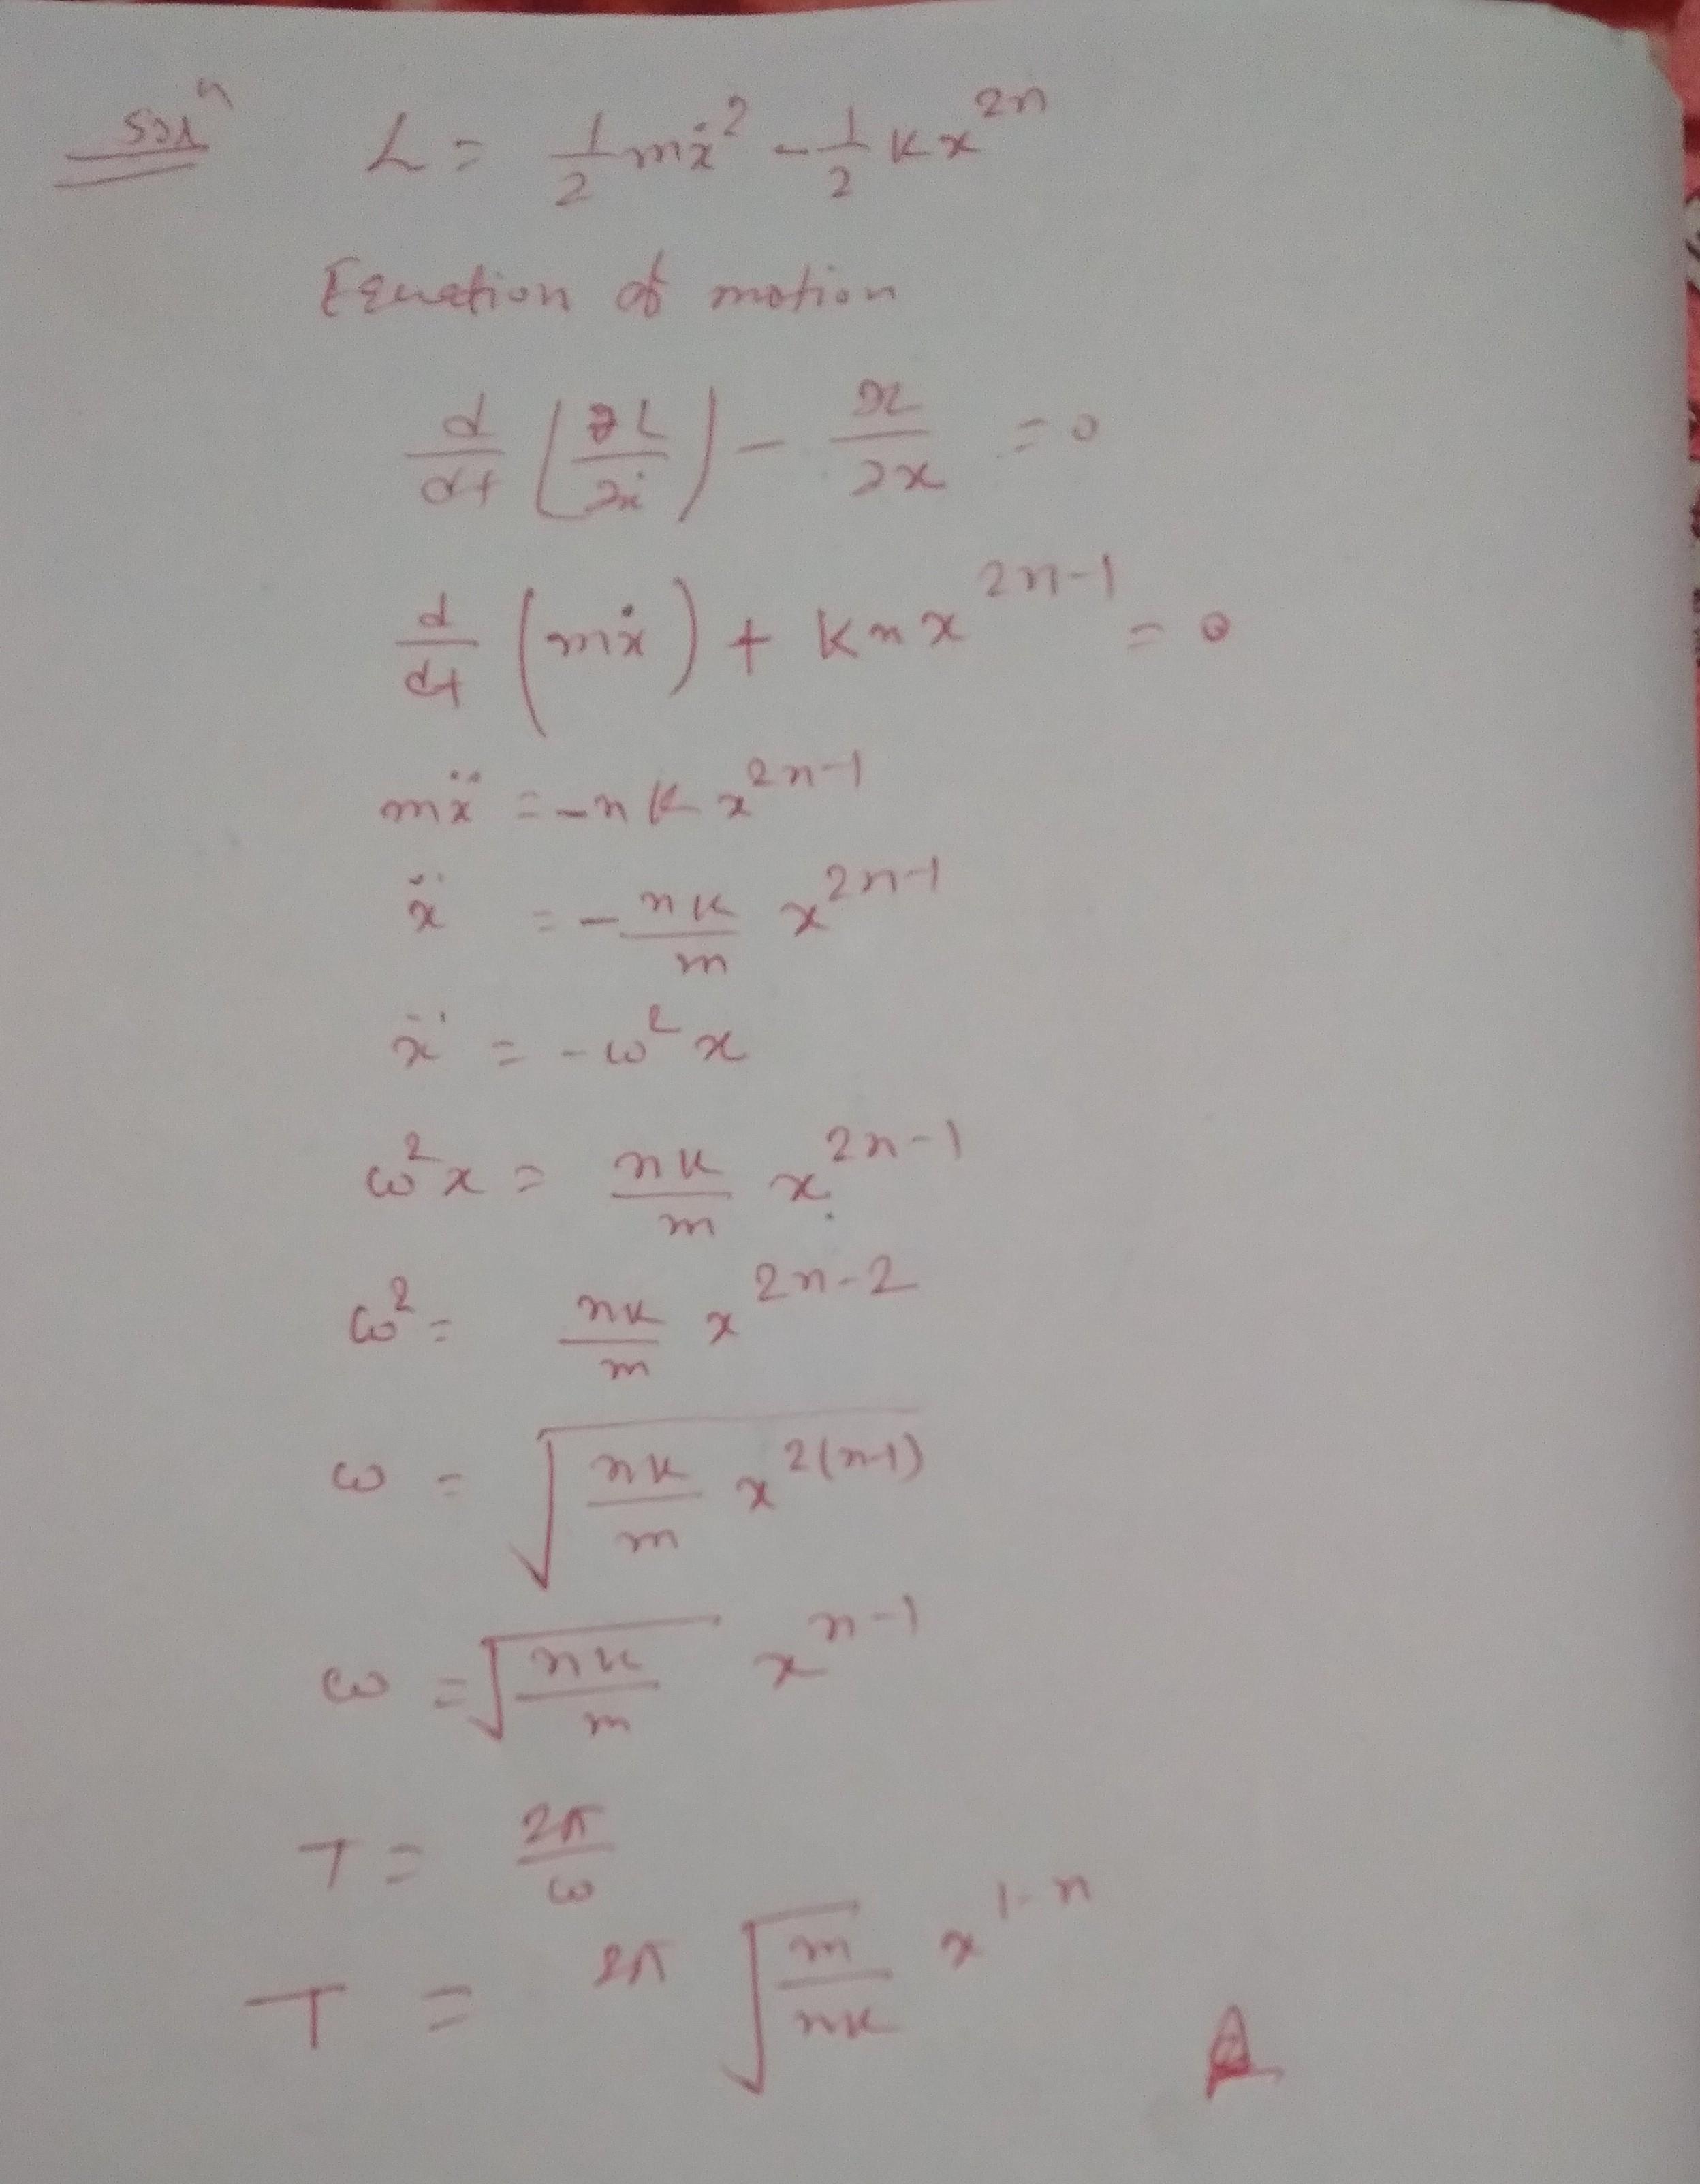 Solⁿ L = 1/2 mẋ² - 1/2 Kx²ⁿ
Equation of motion
d/dt (∂L/∂ẋ) - ∂L/∂x = 0
d/dt (mẋ) + Knx²ⁿ⁻¹ = 0
mẍ = -nKx²ⁿ⁻¹
ẍ = - nK/m x²ⁿ⁻¹
ẍ = -ω²x
ω²x = nK/m x²ⁿ⁻¹
ω² = nK/m x²ⁿ⁻²
ω = √(nK/m x²⁽ⁿ⁻¹⁾)
ω = √(nK/m) xⁿ⁻¹
T = 2π/ω
T = 2π √(m/nK) x¹⁻ⁿ